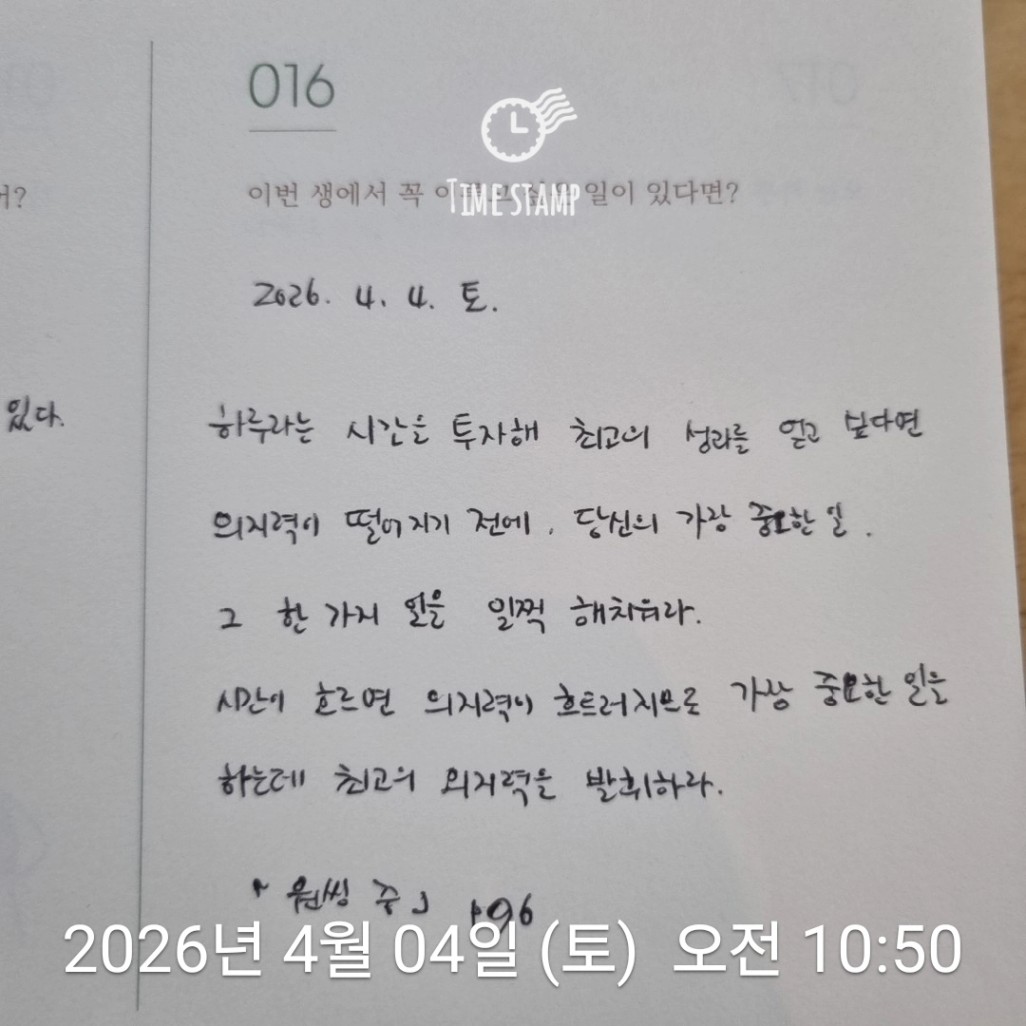 016
어?
이번 생에서 꼭 이루고 싶은 일이 있다면?
TIMESTAMP
2026. 4. 4. 토.
있다.
하루라는 시간을 투자해 최고의 성과를 얻고 싶다면
의지력이 떨어지기 전에, 당신의 가장 중요한 일.
그 한 가지 일을 일찍 해치워라.
시간이 흐르면 의지력이 흐트러지므로 가장 중요한 일을
하는데 최고의 의지력을 발휘하라.
「원씽 중」 p96
2026년 4월 04일 (토) 오전 10:50